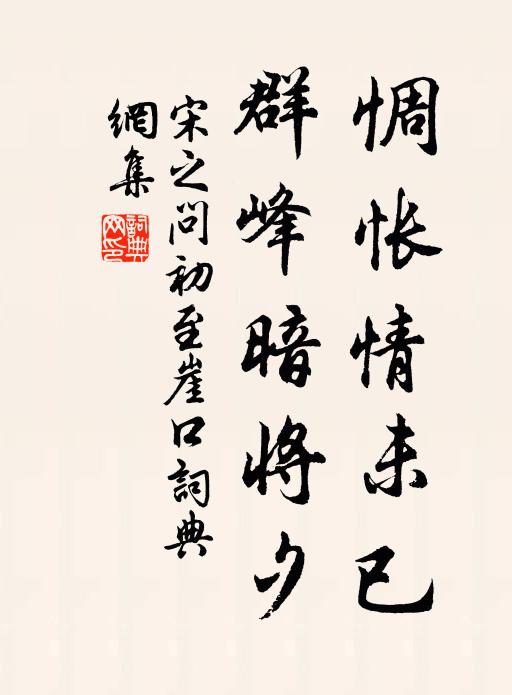 惆怅情未已
群峰暗将夕
宋之问初至崖口詞典
網集
詞典
网印